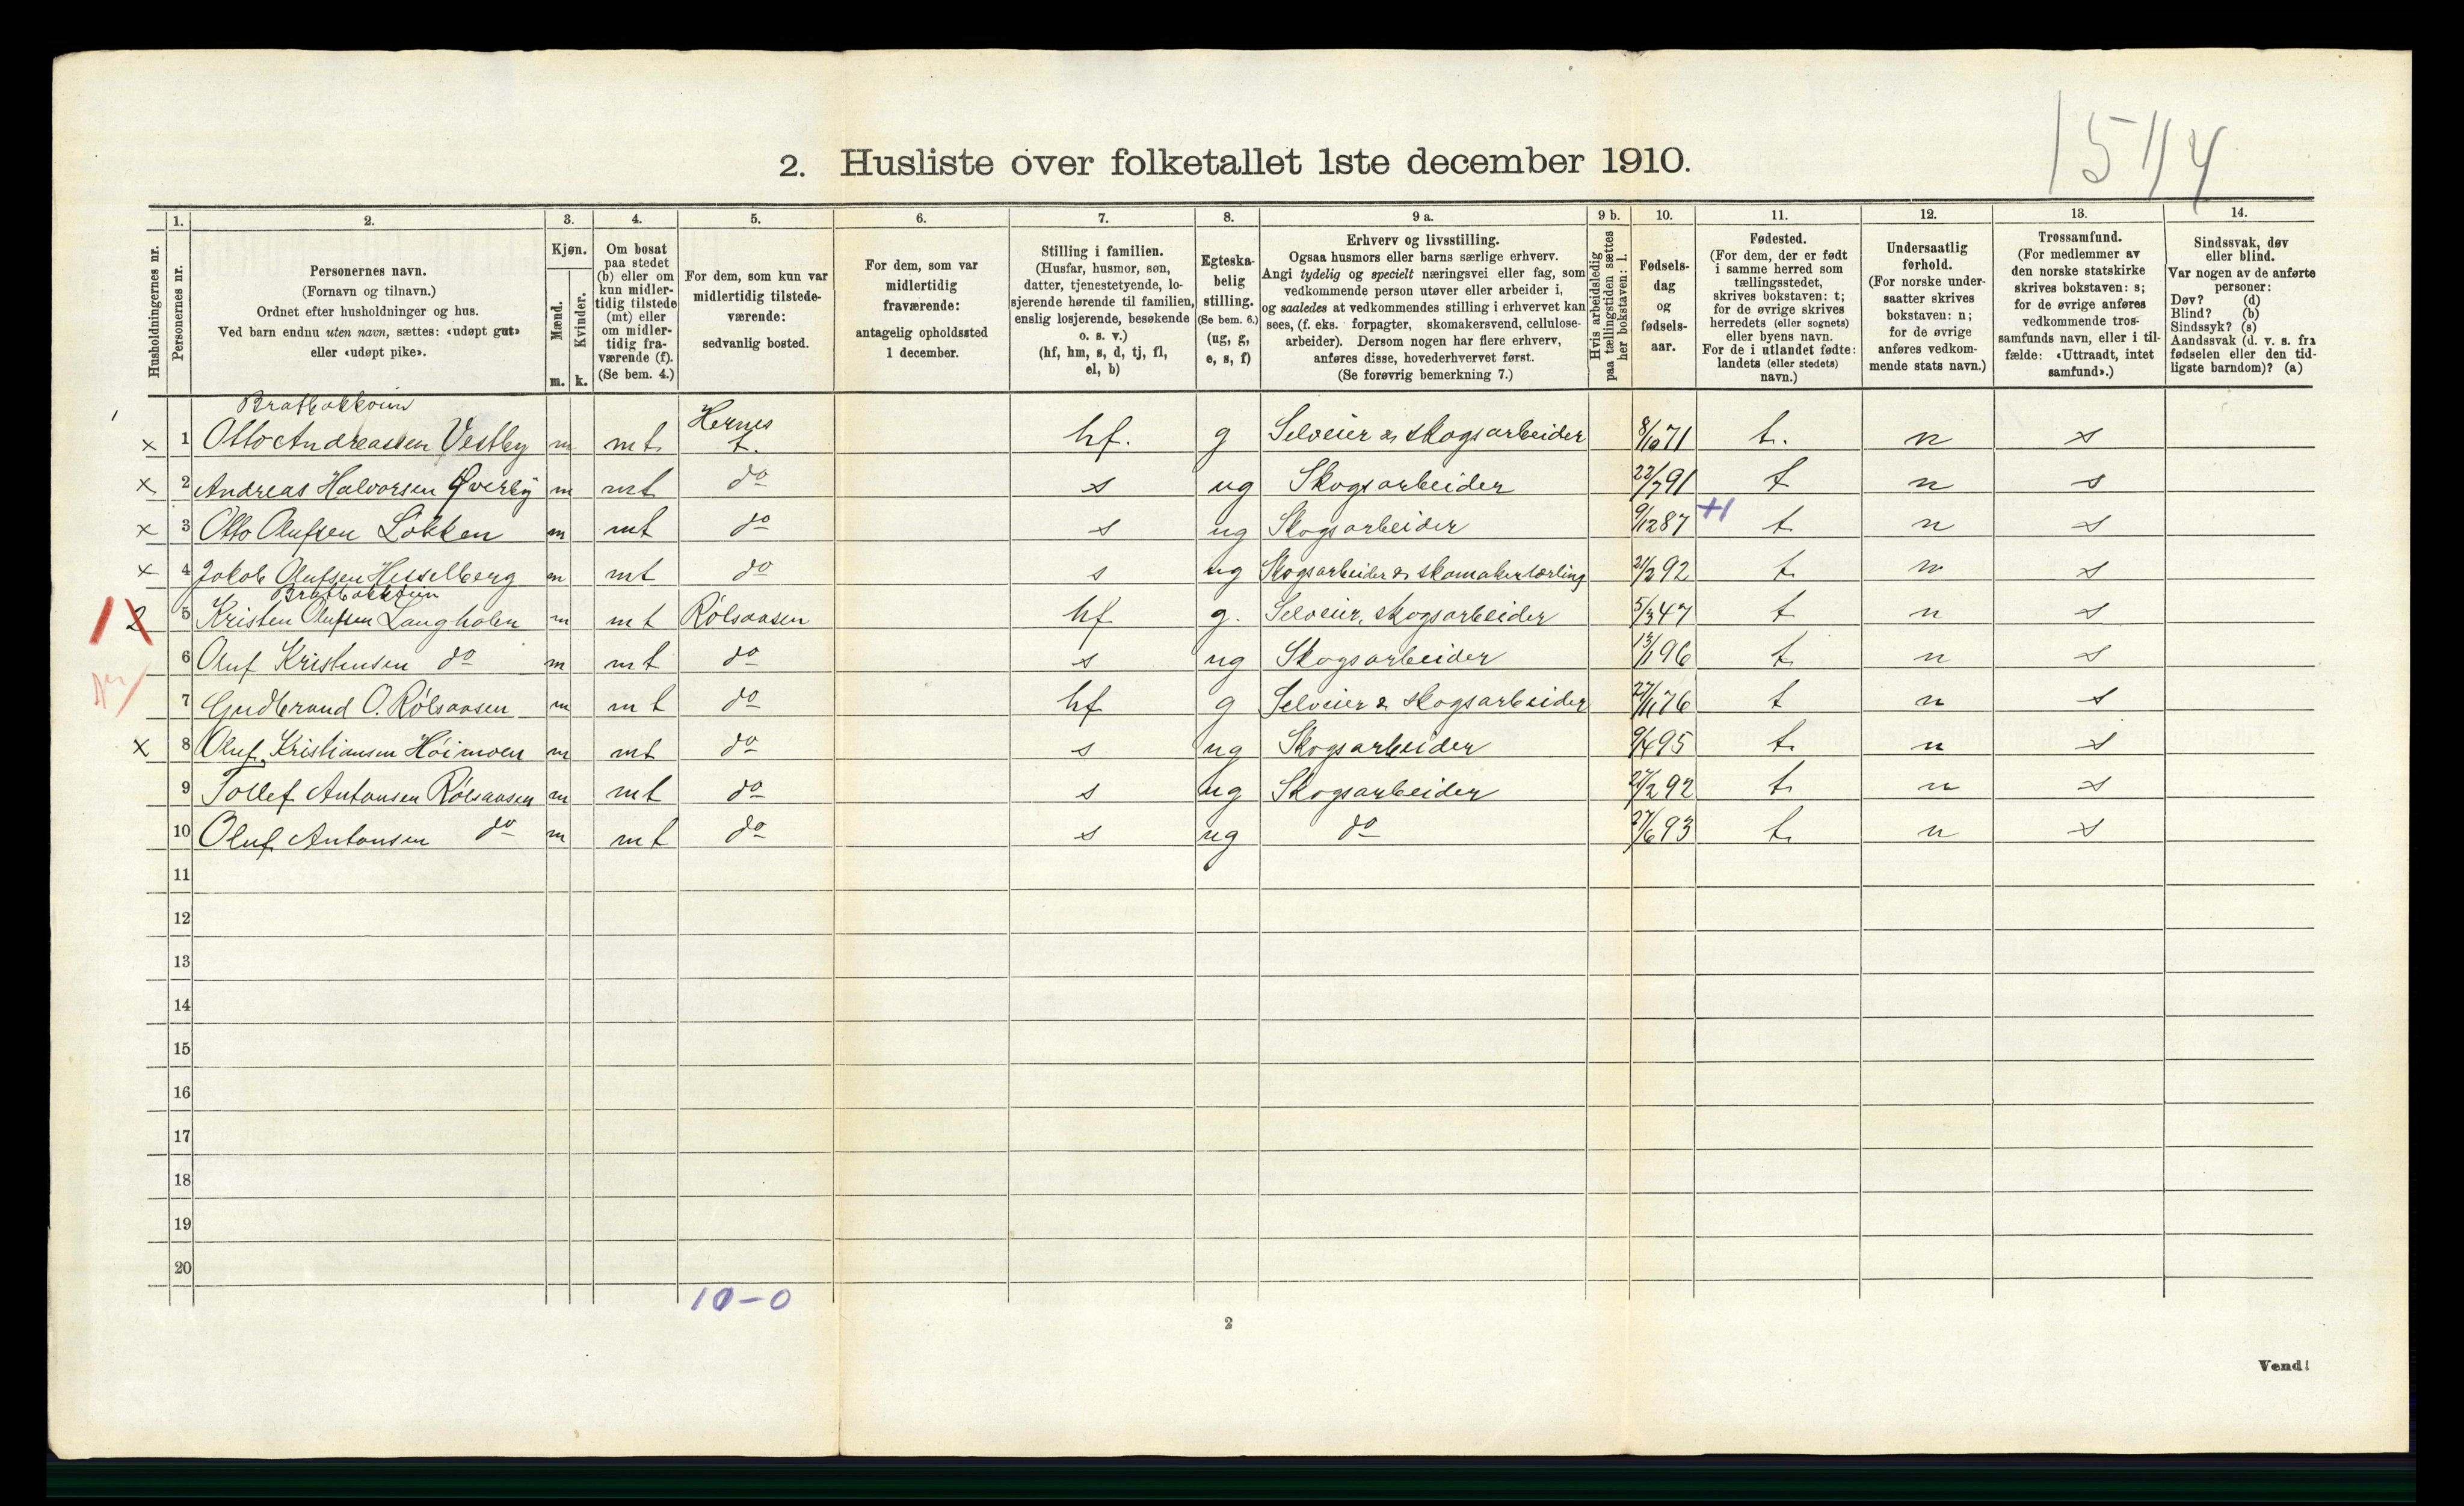 15 11 4
2. Husliste over folketallet 1ste december 1910.
1. 2. 3. 4. 5. 6. 7. 8. 9 a. 9 b. 10. 11. 12. 13. 14.
Husholdningernes nr.
Personernes nr.
Personernes navn.
(Fornavn og tilnavn.)
Ordnet efter husholdninger og hus.
Ved barn endnu uten navn, sættes: «udøpt gut»
eller «udøpt pike».
Kjøn.
Mænd.
Kvinder.
m. k.
Om bosat
paa stedet
(b) eller om
kun midler-
tidig tilstede
(mt) eller
om midler-
tidig fra-
værende (f).
(Se bem. 4.)
For dem, som kun var
midlertidig tilstede-
værende:
sedvanlig bosted.
For dem, som var
midlertidig
fraværende:
antagelig opholdssted
1 december.
Stilling i familien.
(Husfar, husmor, søn,
datter, tjenestetyende, lo-
sjerende hørende til familien,
enslig losjerende, besøkende
o. s. v.)
(hf, hm, s, d, tj, fl,
el, b)
Egteska-
belig
stilling.
(Se bem. 6.)
(ug, g,
e, s, f)
Erhverv og livsstilling.
Ogsaa husmors eller barns særlige erhverv.
Angi tydelig og specielt næringsvei eller fag, som
vedkommende person utøver eller arbeider i,
og saaledes at vedkommendes stilling i erhvervet kan
sees, (f. eks. forpagter, skomakersvend, cellulose-
arbeider). Dersom nogen har flere erhverv,
anføres disse, hovederhvervet først.
(Se forøvrig bemerkning 7.)
Hvis arbeidsledig
paa tællingstiden sættes
her bokstaven: l.
Fødsels-
dag
og
fødsels-
aar.
Fødested.
(For dem, der er født
i samme herred som
tællingsstedet,
skrives bokstaven: t;
for de øvrige skrives
herredets (eller sognets)
eller byens navn.
For de i utlandet fødte:
landets (eller stedets)
navn.)
Undersaatlig
forhold.
(For norske under-
saatter skrives
bokstaven: n;
for de øvrige
anføres vedkom-
mende stats navn.)
Trossamfund.
(For medlemmer av
den norske statskirke
skrives bokstaven: s;
for de øvrige anføres
vedkommende tros-
samfunds navn, eller i til-
fælde: «Uttraadt, intet
samfund».)
Sindssvak, døv
eller blind.
Var nogen av de anførte
personer:
Døv? (d)
Blind? (b)
Sindssyk? (s)
Aandssvak (d. v. s. fra
fødselen eller den tid-
ligste barndom)? (a)
Hernes
x 1 Otto Andreassen Vestby m mt t. hf. g Selveier & skogsarbeider 8/10 71 t. n s
x 2 Andreas Halvorsen Øverby m mt do s ug Skogsarbeider 22/7 91 t n s
x 3 Otto Olufsen Løkken m mt do s ug Skogsarbeider 9/12 87 t n s
x 4 Jakob Olufsen Hesselberg m mt do s ug Skogsarbeider & skomakerlærling 21/2 92 t n s
2 5 Kristen Olufsen Langholen m mt Rølsaasen hf g. Selveier, skogsarbeider 5/3 47 t n s
6 Oluf Kristensen do m mt do s ug Skogsarbeider 13/1 96 t n s
7 Gudbrand O. Rølsaasen m mt do hf g Selveier & skogsarbeider 27/11 76 t n s
x 8 Oluf Kristiansen Høimoen m mt do s ug Skogsarbeider 9/4 95 t n s
9 Tollef Antonsen Rølsaasen m mt do s ug Skogsarbeider 27/2 92 t n s
10 Oluf Antonsen do m mt do s ug do 27/6 93 t n s
11
12
13
14
15
16
17
18
19
20
10-0
2
Vend!